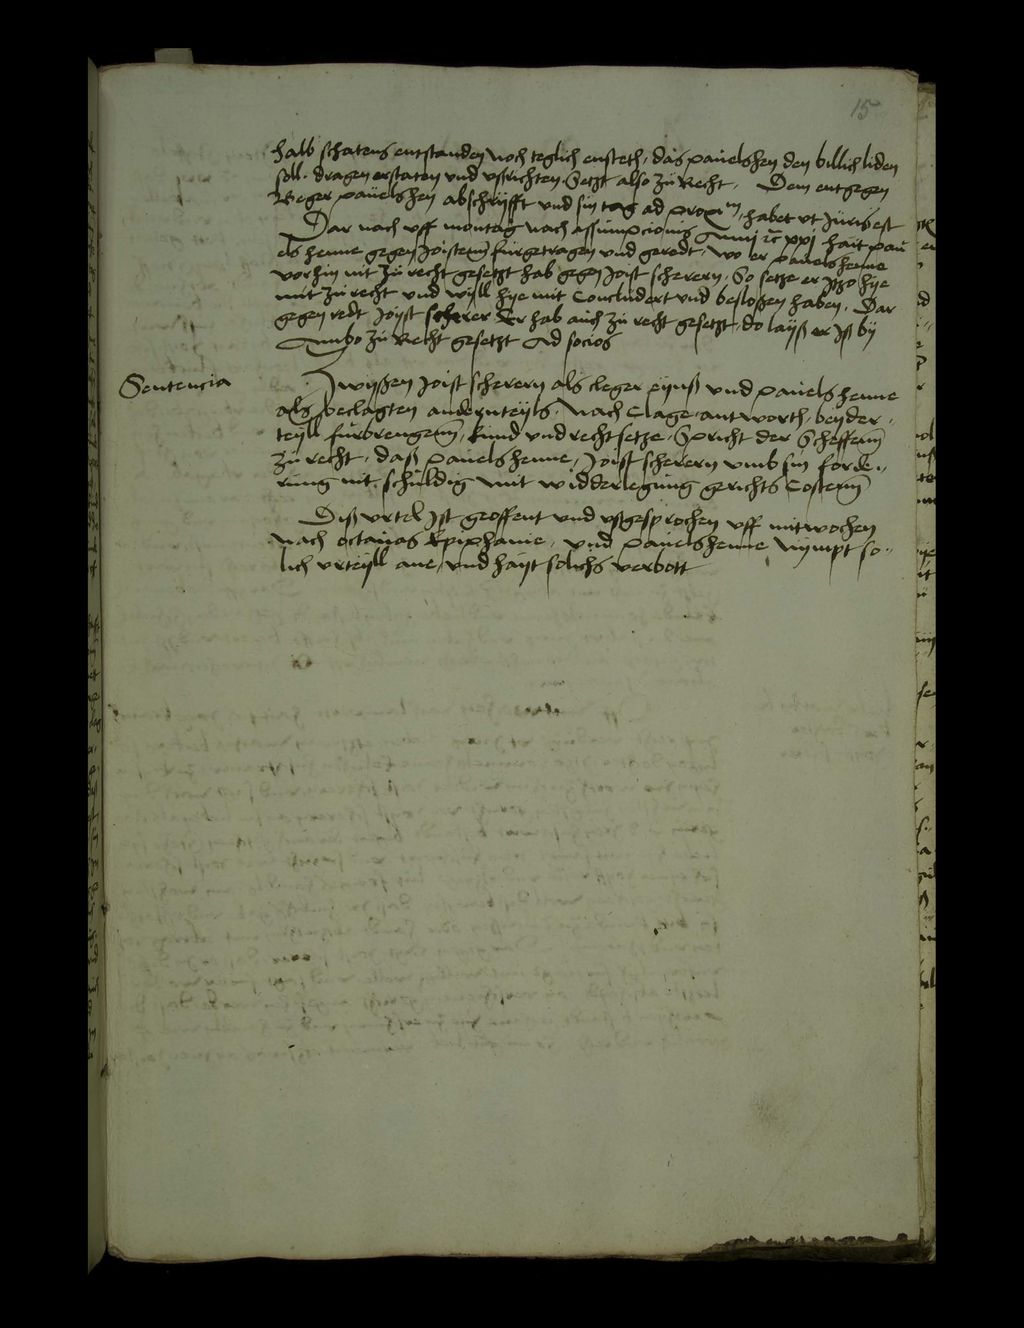 15
halb schatens entstanden noch teglich ensteth, das pauelshen den billich liden
soll dragen erstaten und ußrichten Setzt also zu Recht. Dem entgegen
Beger pauelshen abschryfft und sin tag ad proxim, habet ut Juris est
Dar nach uff montag nach assumpcionis Anni xxj hait pau
els henne gegen Joisten furgetragen und geredt, wo er pauelshenne
vorhin nit zu recht gesetzt hab gegen Joist scherern, So setze er itzo hye
mit zu recht und will hye mit Concludert und besloßen haben, Dar
gegen redt Joyst scherer Er hab auch zu recht gesetzt, do layß er Jß by
Ambo zu Recht gesetzt Ad socios
Sentencia
Zwyßen Joist scherern als cleger eynß und pauels henne
als beclagten andernteyls, Nach Clage, antworth, beyder
teyll furbrengenn, kund und recht setze, Spricht der Scheffenn
zu recht, daß pauels henne, Joist scherern umb sin forde
rung nit schuldig mit widderlegung gerichts Costenn
Diß urtel Jst geoffent und ußgesprochen uff mitwochen
nach octauas Epiphanie, und pauelshenne nympt so
lich urteyll ane, und hayt solichs verbott